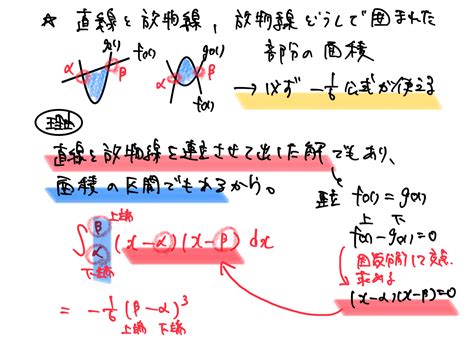 ☆ 直線と放物線, 放物線どうしで囲まれた
部分の面積
g(x) f(x)
α β
g(x)
α β
f(x)
→ 必ず -1/6 公式が使える
理由
直線と放物線を連立させて出した解でもあり、
面積の区間でもあるから。
連立 f(x) = g(x)
上 下
f(x) - g(x) = 0
因数分解して交点
求める
(x-α)(x-β) = 0
上端
∫ β α (x-α)(x-β) dx
下端
= -1/6 (β-α)³
上端 下端